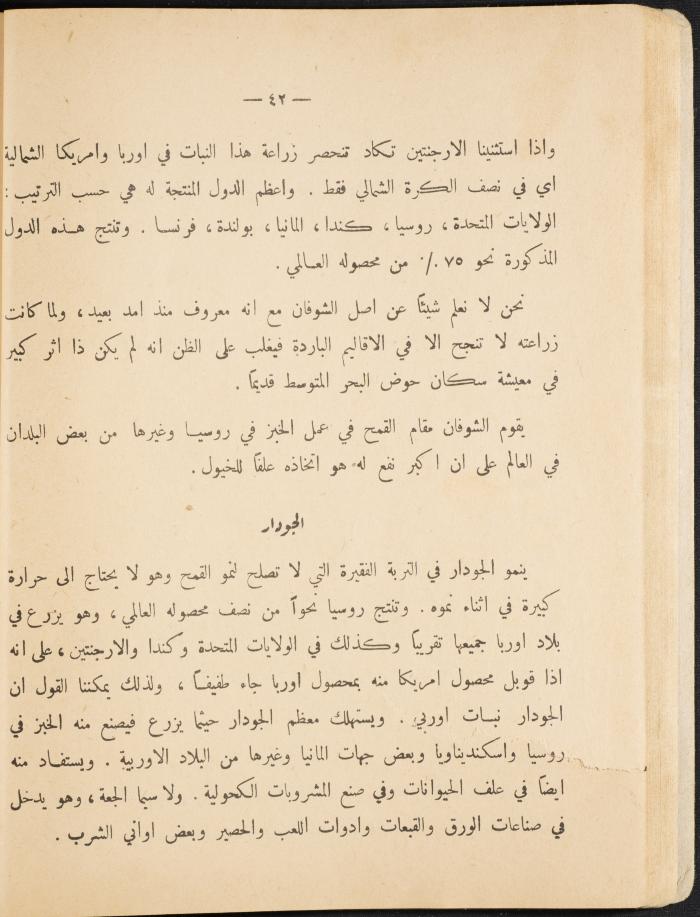 — ٤٢ —
واذا استثنينا الارجنتين تكاد تنحصر زراعة هذا النبات في اوربا وامريكا الشمالية
اي في نصف الكرة الشمالي فقط . واعظم الدول المنتجة له هي حسب الترتيب :
الولايات المتحدة ، روسيا ، كندا ، المانيا ، بولندة ، فرنسا . وتنتج هذه الدول
المذكورة نحو ٧٥ ٪ من محصوله العالمي .
نحن لا نعلم شيئاً عن اصل الشوفان مع انه معروف منذ امد بعيد ، ولما كانت
زراعته لا تنجح الا في الاقاليم الباردة فيغلب على الظن انه لم يكن ذا اثر كبير
في معيشة سكان حوض البحر المتوسط قديماً .
يقوم الشوفان مقام القمح في عمل الخبز في روسيا وغيرها من بعض البلدان
في العالم على ان اكبر نفع له هو اتخاذه علفاً للخيول .
الجودار
ينمو الجودار في التربة الفقيرة التي لا تصلح لنمو القمح وهو لا يحتاج الى حرارة
كبيرة في اثناء نموه . وتنتج روسيا نحواً من نصف محصوله العالمي ، وهو يزرع في
بلاد اوربا جميعها تقريباً وكذلك في الولايات المتحدة وكندا والارجنتين ، على انه
اذا قوبل محصول امريكا منه بمحصول اوربا جاء طفيفاً ، ولذلك يمكننا القول ان
الجودار نبات اوربي . ويستهلك معظم الجودار حيثما يزرع فيصنع منه الخبز في
روسيا واسكنديناويا وبعض جهات المانيا وغيرها من البلاد الاوربية . ويستفاد منه
ايضاً في علف الحيوانات وفي صنع المشروبات الكحولية . ولا سيما الجعة ، وهو يدخل
في صناعات الورق والقبعات وادوات اللعب والحصير وبعض اواني الشرب .